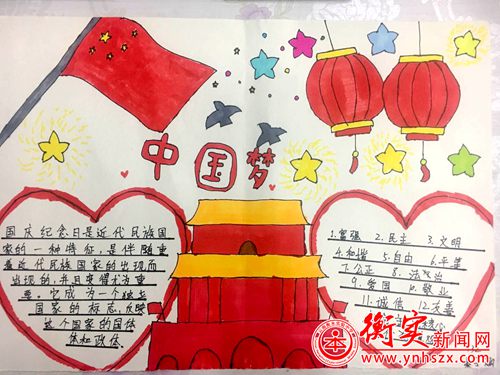 中国梦
国庆纪念日是近代民族国
家的一种特征,是伴随着
近代民族国家的出现而
出现的,并且变得尤为重
要。它成为一个独立
国家的标志,反映
这个国家的国体
和政体
1.富强 2.民主 3.文明
4.和谐 5.自由 6.平等
7.公正 8.法治
9.爱国 10.敬业
11.诚信 12.友善
衡实新闻网
www.ynhszx.com